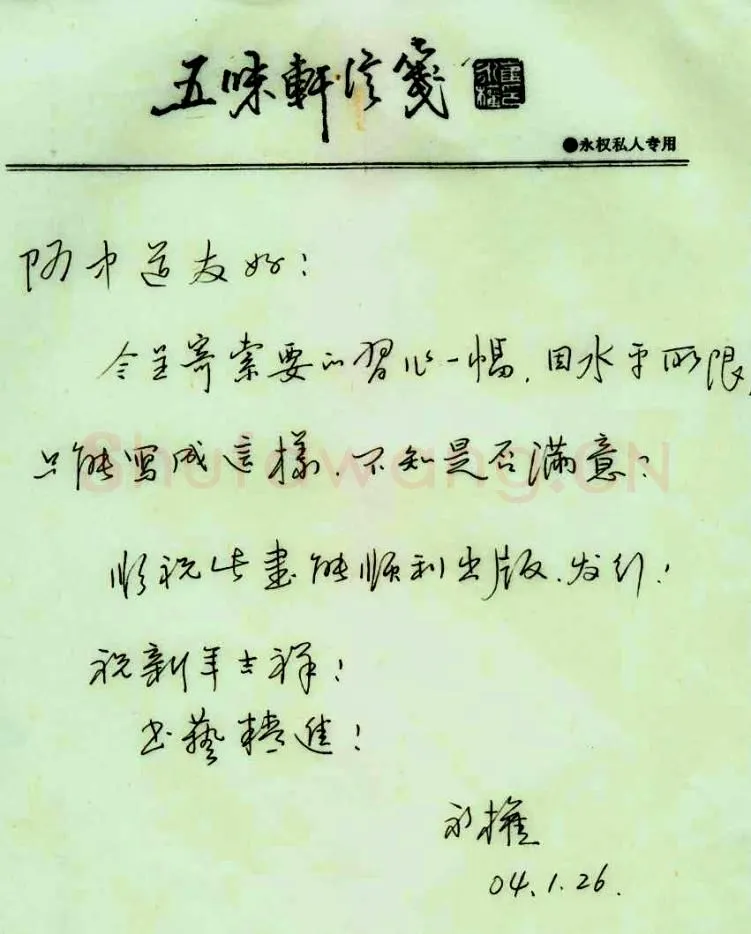 五味軒信箋
●永权私人专用
阿中道友好：
今呈寄索要的習作一幅，因水平所限，
只能寫成這樣，不知是否滿意？
順祝此書能順利出版、发行！
祝新年吉祥！
书藝精進！
永權
04.1.26.
Shufawang.CN